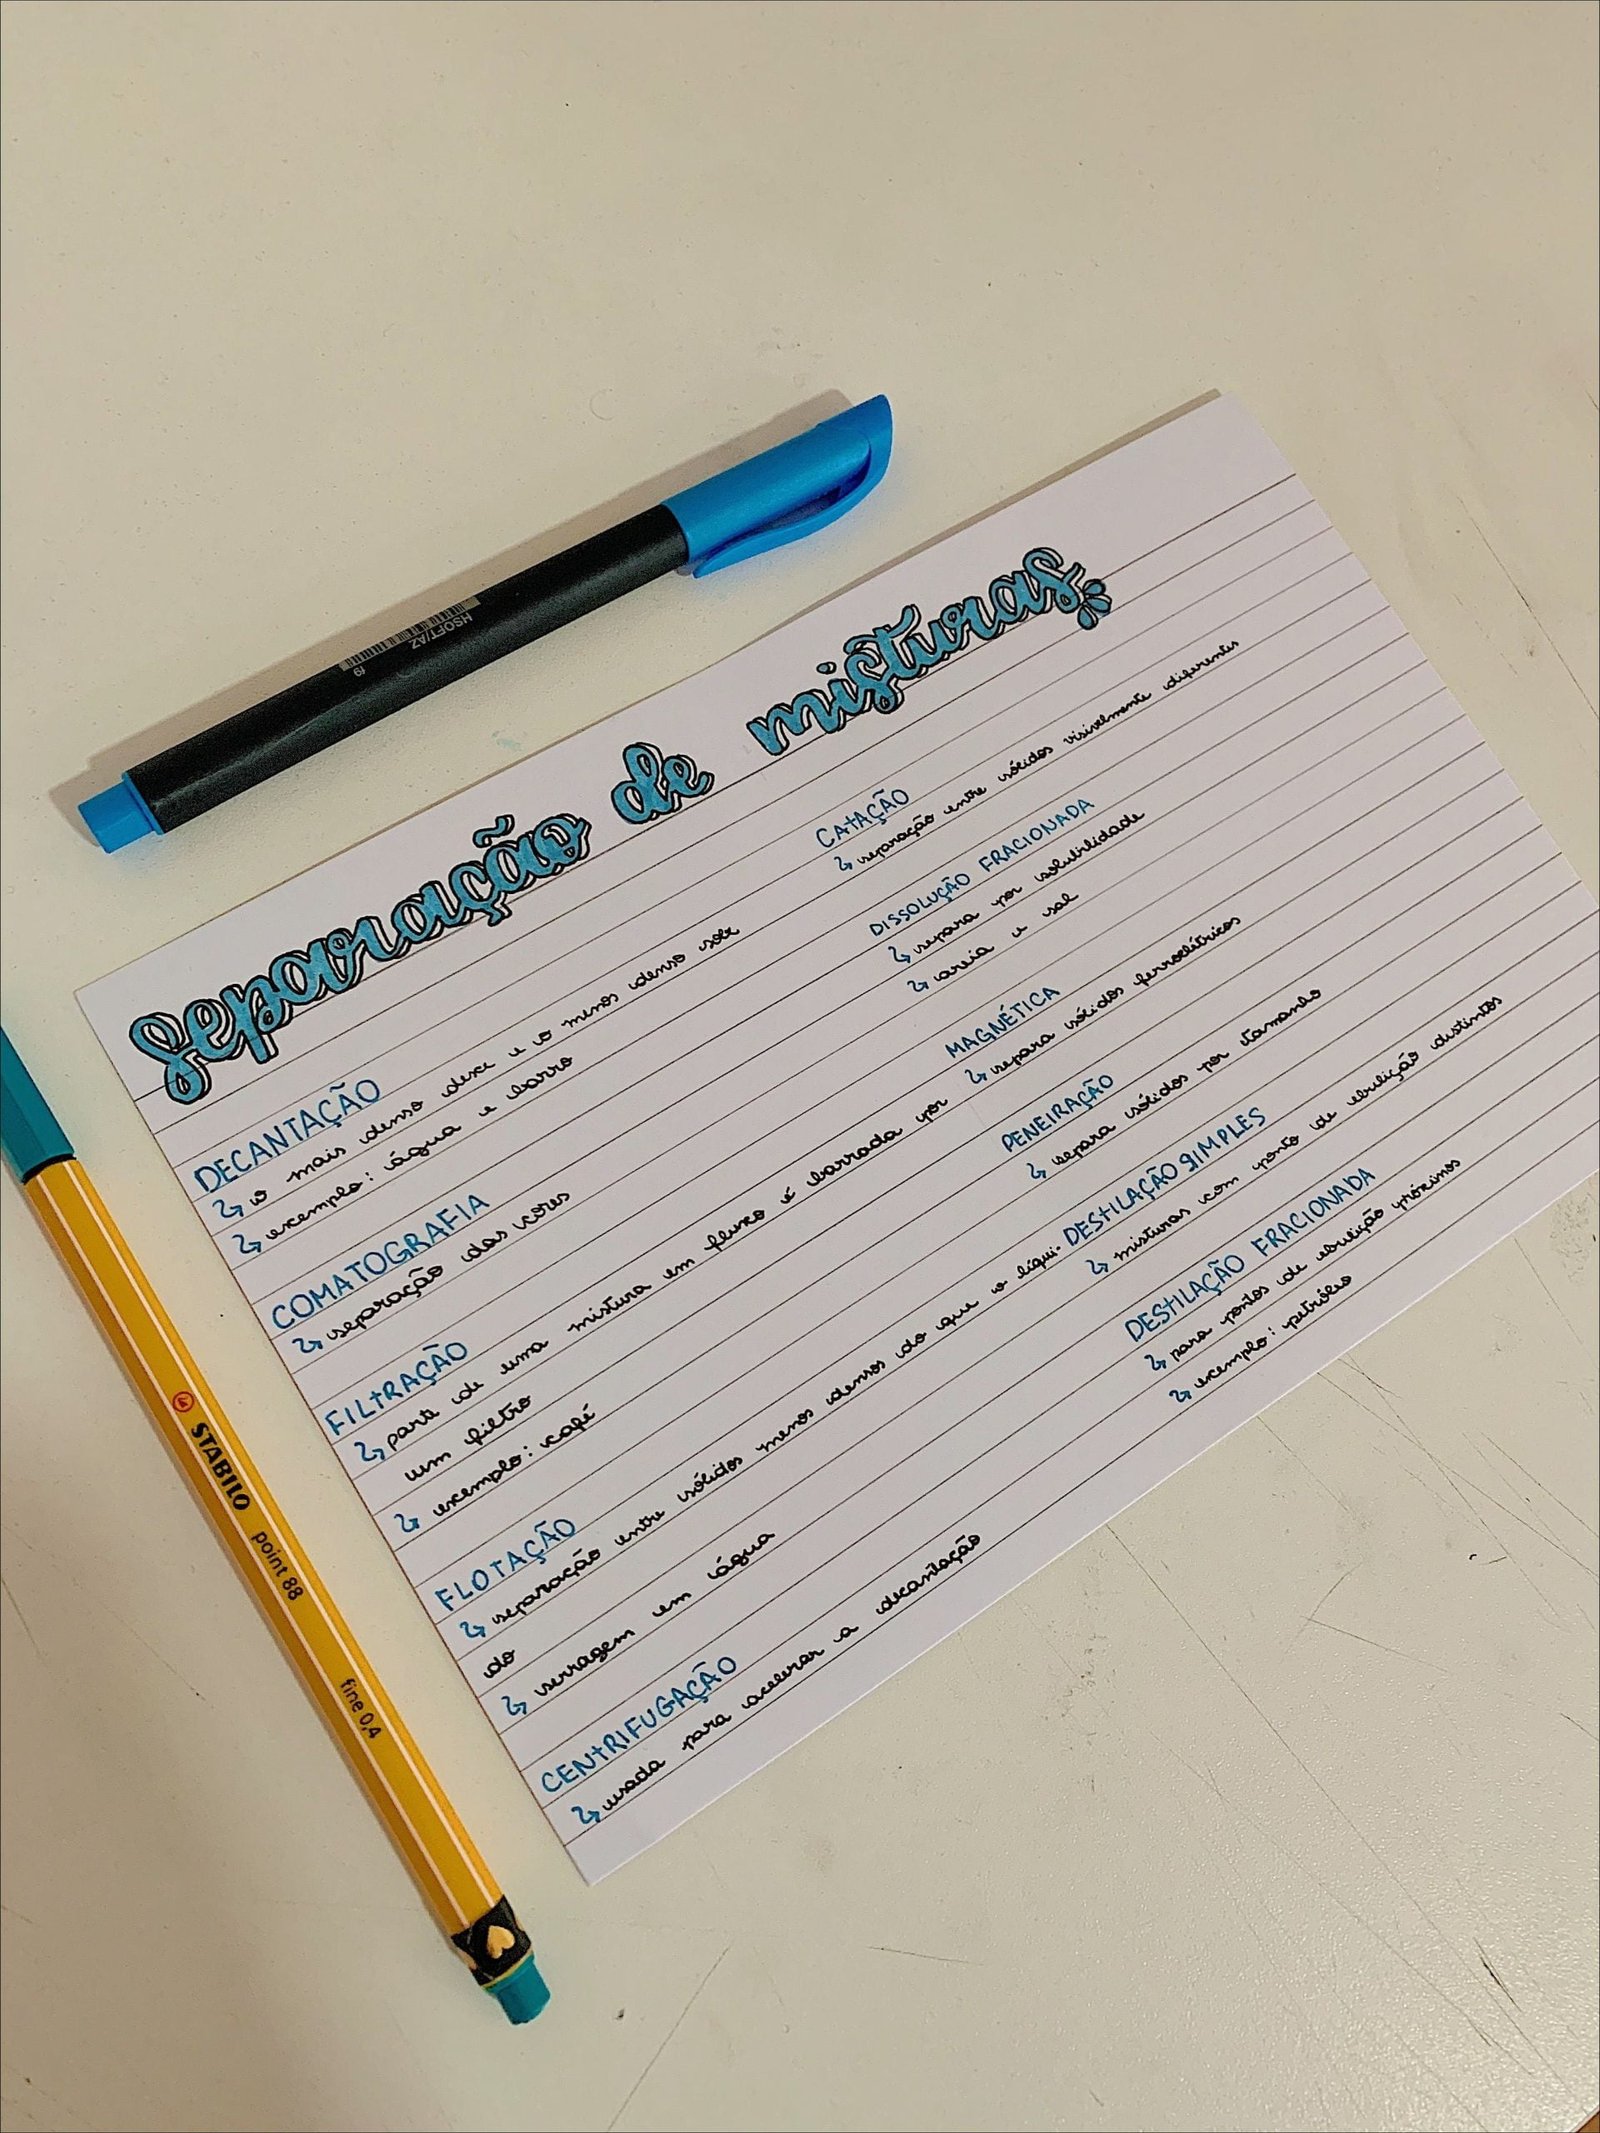 separação de misturas
DECANTAÇÃO
↳ o mais denso dexe e o menos denso sobe
↳ exemplo: água e barro
COMATOGRAFIA
↳ separação das cores
FILTRAÇÃO
↳ parte de uma mistura em fluxo é barrada por
um filtro
↳ exemplo: café
FLOTAÇÃO
↳ separação entre sólidos menos densos do que o líqui-
do
↳ serragem em água
CENTRIFUGAÇÃO
↳ usada para acelerar a decantação
CATAÇÃO
↳ separação entre sólidos visivelmente diferentes
DISSOLUÇÃO FRACIONADA
↳ separa por solubilidade
↳ areia e sal
MAGNÉTICA
↳ separa sólidos ferroelétricos
PENEIRAÇÃO
↳ separa sólidos por tamanho
DESTILAÇÃO SIMPLES
↳ misturas com ponto de ebulição distintos
DESTILAÇÃO FRACIONADA
↳ para pontos de ebulição próximos
↳ exemplo: petróleo
HSOFT/AZ
STABILO point 88 fine 0,4